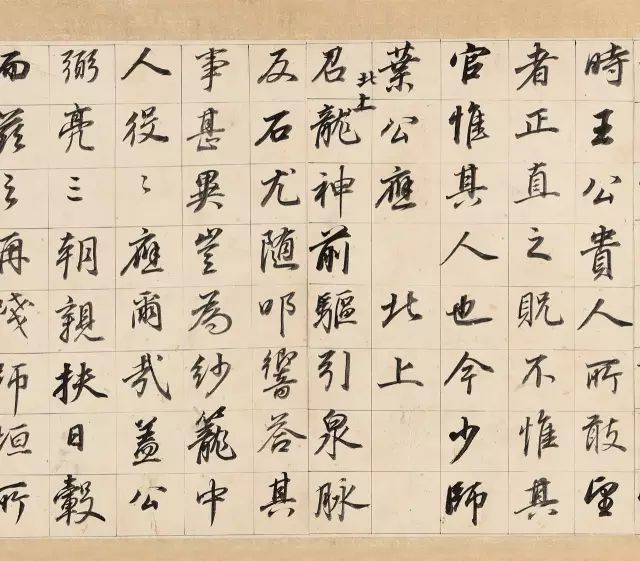 時王公貴人所敢望
者正直之貺不惟其
官惟其人也今少師
葉公應 北上
北上
召龍神前驅引泉脉
反石尤随叩響答其
事甚異豈為紗籠中
人役〻應爾哉蓋公
弼亮三朝親扶日轂
而茲 再踐師垣所